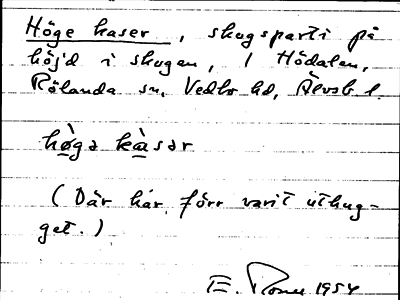 Höge kaser, skogsparti på
höjd i skogen, i Hödalen,
Rölanda sn, Vedbo hd, Älvsb l.
hø̀gə kàsər
(Där har förr varit uthug-
get.)
E. 1954